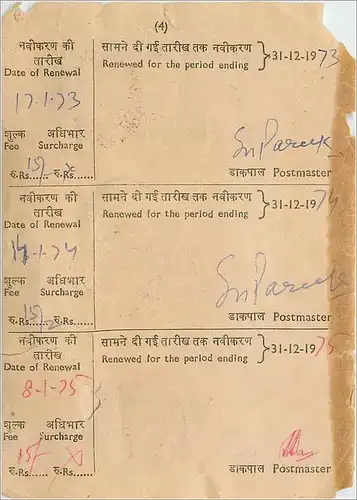 (4)
नवीकरण की
तारीख
Date of Renewal
17.1.73
सामने दी गई तारीख तक नवीकरण
Renewed for the period ending
31-12-1973
शुल्क अधिभार
Fee Surcharge
रु.Rs...15/... रु.Rs...x...
डाकपाल Postmaster
नवीकरण की
तारीख
Date of Renewal
14.1.74
सामने दी गई तारीख तक नवीकरण
Renewed for the period ending
31-12-1974
शुल्क अधिभार
Fee Surcharge
रु.Rs...15/... रु.Rs......
डाकपाल Postmaster
नवीकरण की
तारीख
Date of Renewal
8-1-75
सामने दी गई तारीख तक नवीकरण
Renewed for the period ending
31-12-1975
शुल्क अधिभार
Fee Surcharge
15/- x
रु.Rs...... रु.Rs......
डाकपाल Postmaster